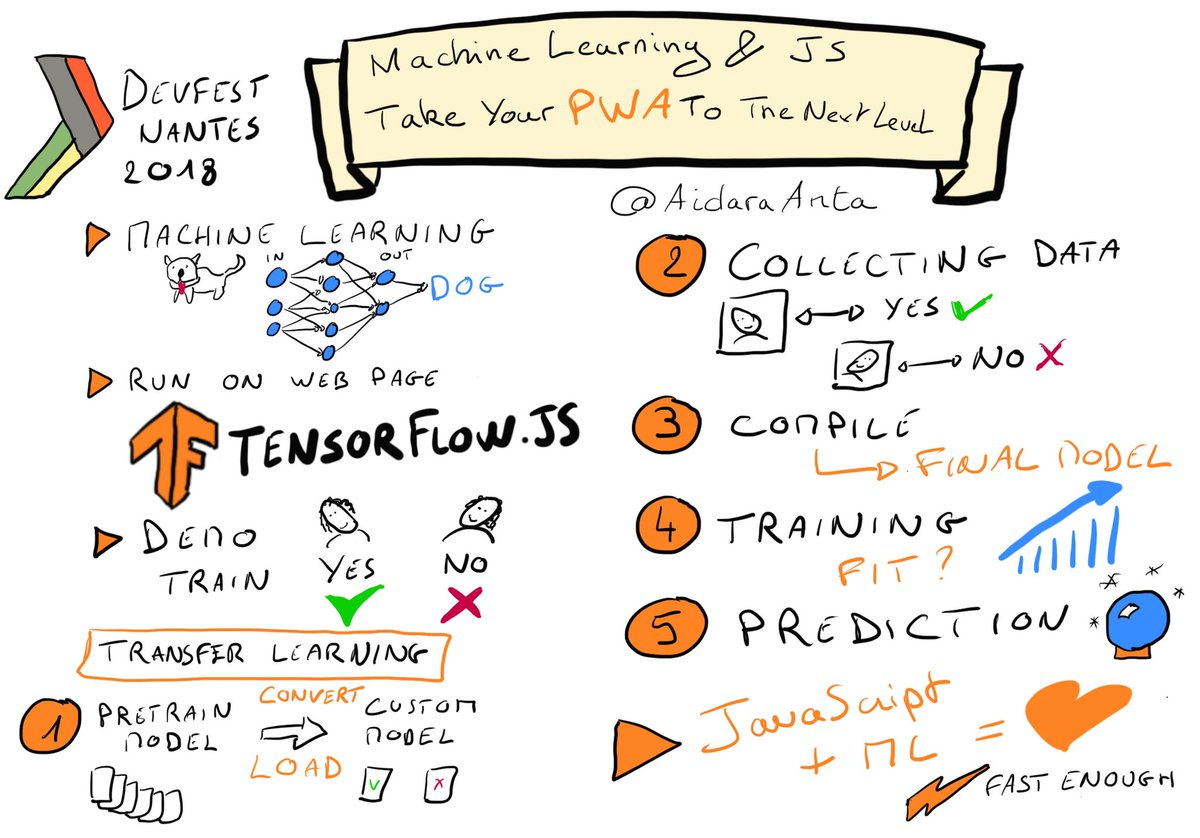 DEVFEST
NANTES
2018
Machine Learning & JS
Take Your PWA To The Next Level
@AidaraAnta
MACHINE LEARNING
IN
OUT
DOG
RUN ON WEB PAGE
TF TENSORFLOW.JS
DEMO
TRAIN
YES
NO
TRANSFER LEARNING
1
PRETRAIN
MODEL
CONVERT
LOAD
CUSTOM
MODEL
2 COLLECTING DATA
YES
NO
3 COMPILE
FINAL MODEL
4 TRAINING
FIT?
5 PREDICTION
JavaScript
+ ML =
FAST ENOUGH